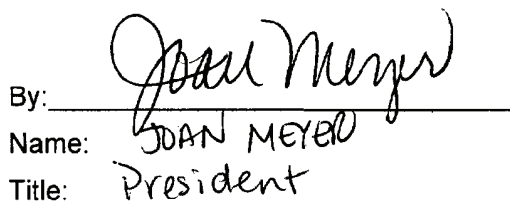 By: Joan Meyer
Name: JOAN MEYER
Title: President